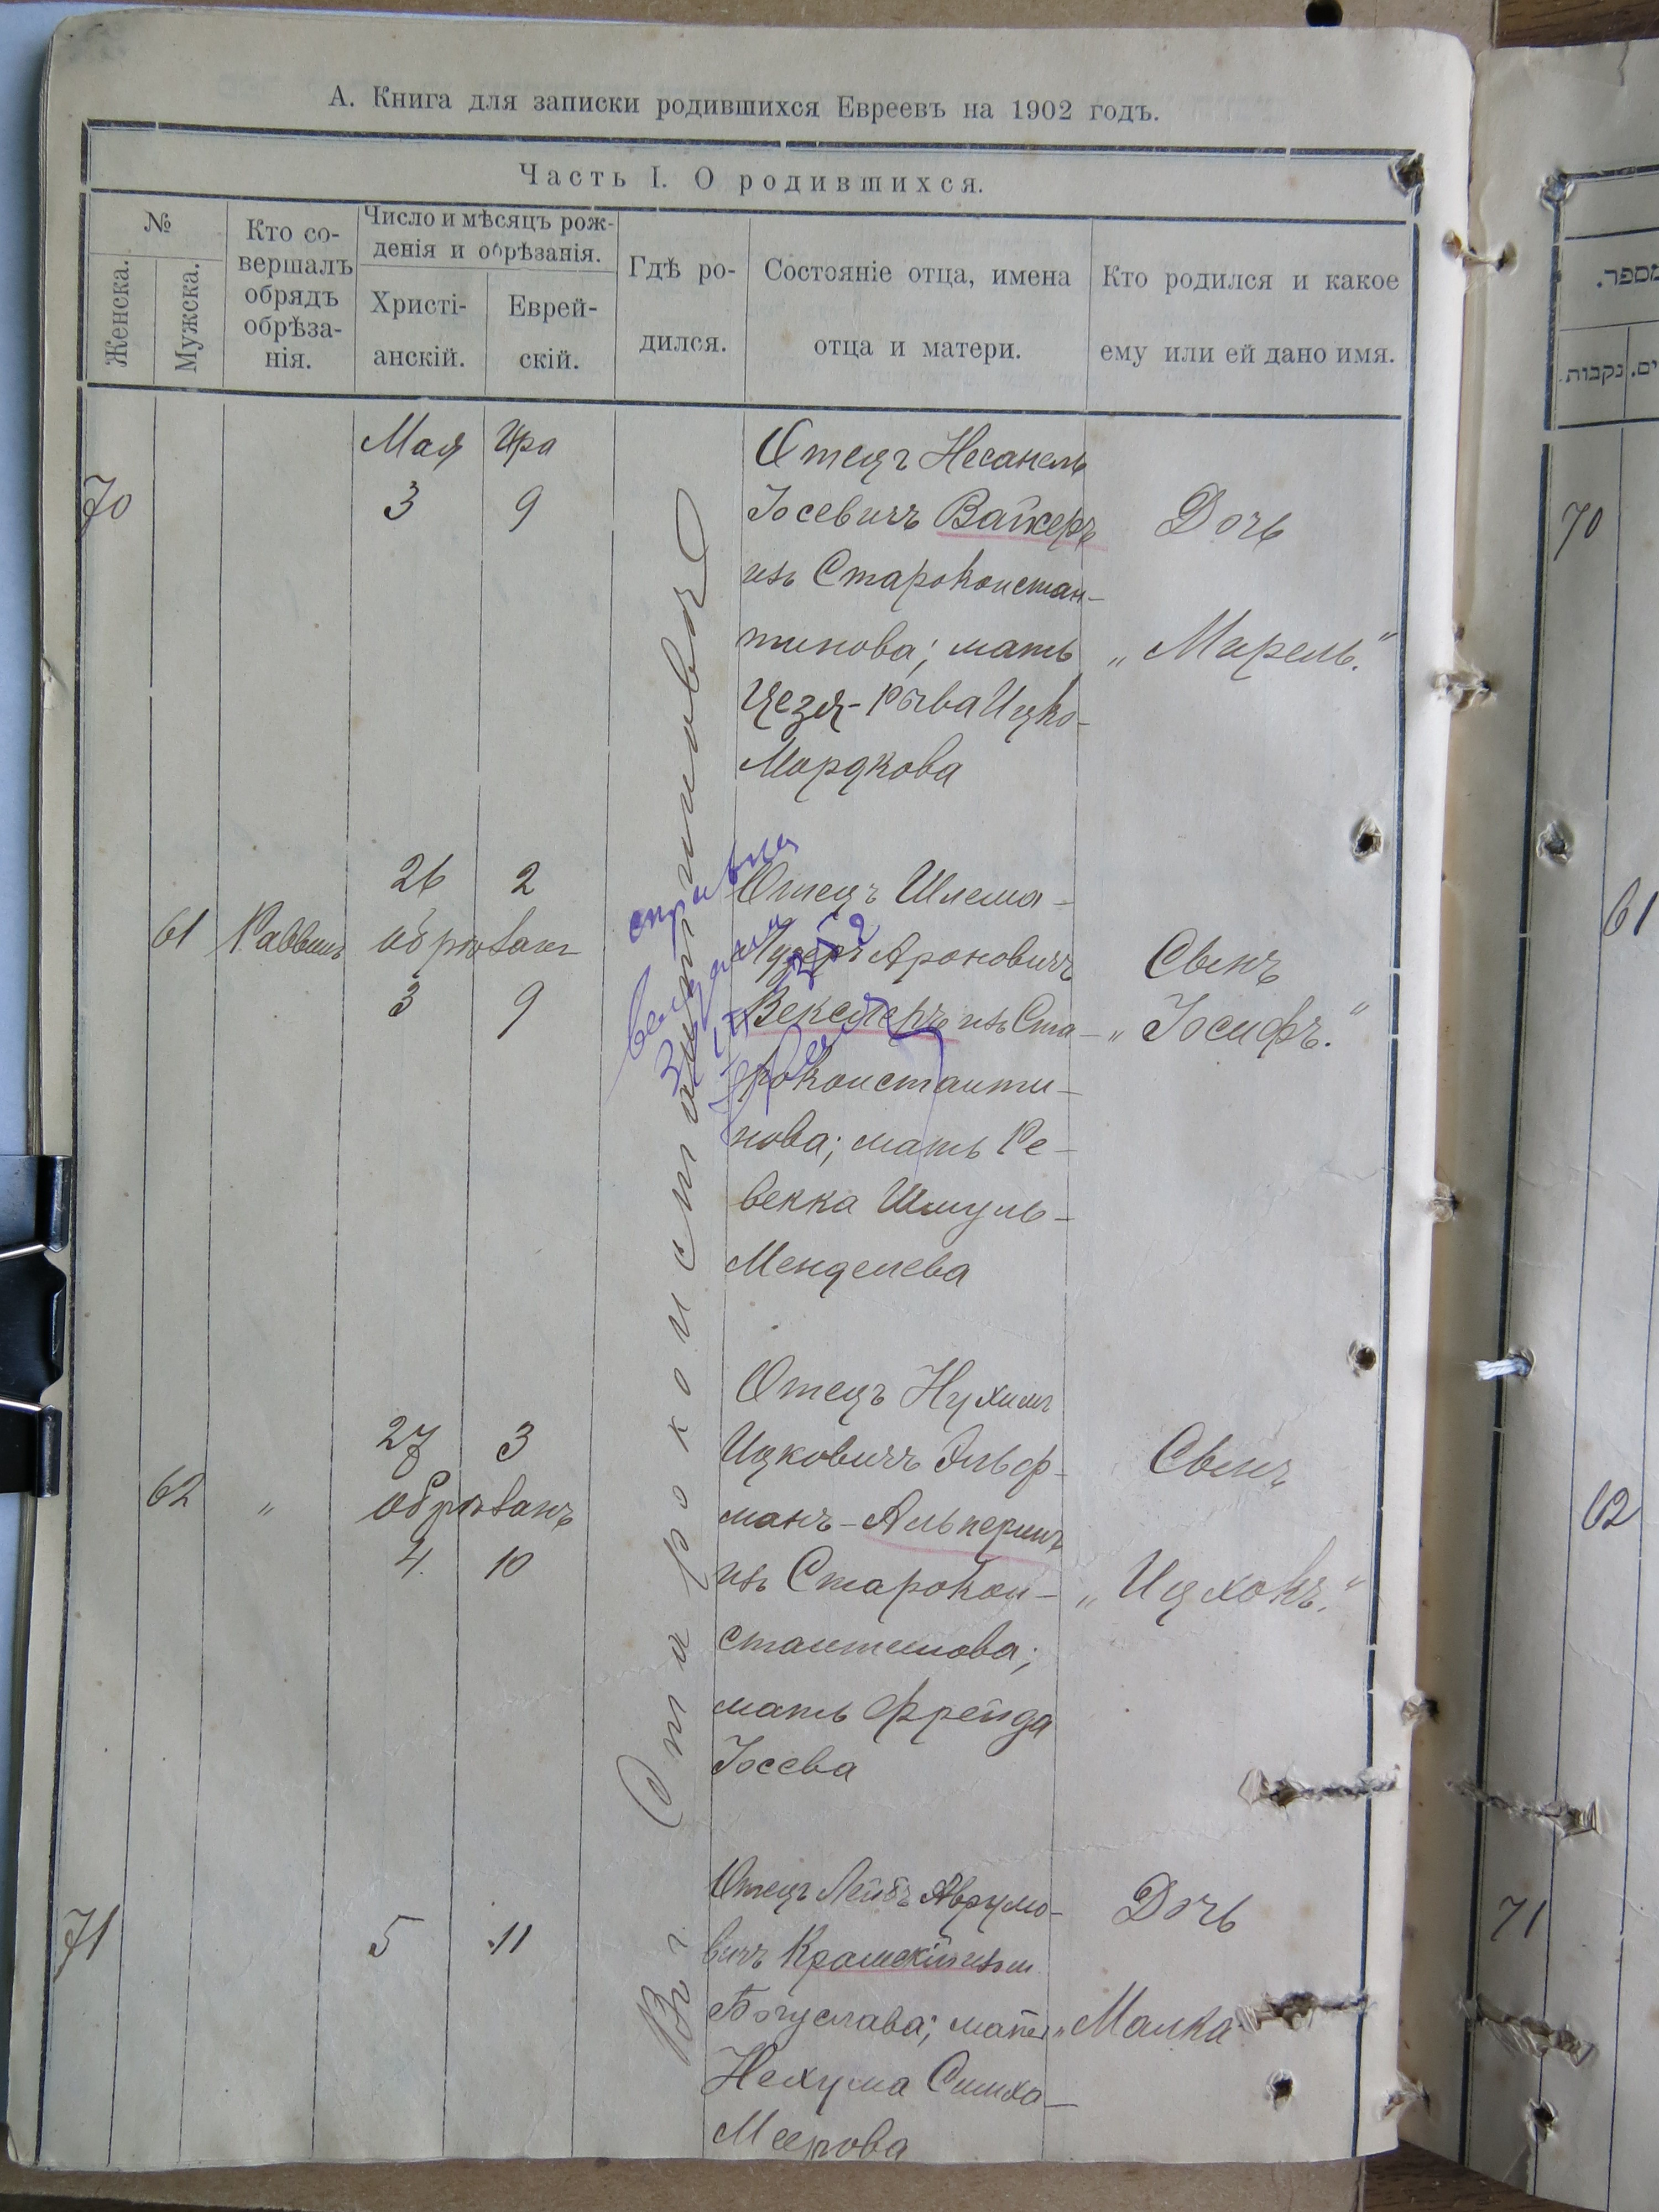 А. Книга для записки родившихся Евреевъ на 1902 годъ.
Часть I. О родившихся.
№
Женска.
Мужска.
Кто со-
вершалъ
обрядъ
обрѣза-
нія.
Число и мѣсяцъ рож-
денія и обрѣзанія.
Христі-
анскій.
Еврей-
скій.
Гдѣ ро-
дился.
Состояніе отца, имена
отца и матери.
Кто родился и какое
ему или ей дано имя.
Въ г. Староконстантиновѣ
70
Мая Ира
3 9
Отецъ Несанель
Іосевичъ Вайнеръ
изъ Староконстан-
тинова; мать
Цезя-Рыва Ицко-
Мордкова
Дочь
„Мирель."
61 Раввинъ
26 2
обрѣзанъ
3 9
Отецъ Шлема-
Ароновичъ
Векслеръ изъ Ста-
роконстанти-
нова; мать Ре-
векка Шмуль-
Менделева
Сынъ
„Іосифъ."
справка
выдана
62 „
27 3
обрѣзанъ
4. 10
Отецъ Нухимъ
Ицковичъ Эльф-
манъ-Альперинъ
изъ Старокон-
стантинова;
мать Фрейда
Іосева
Сынъ
„Ицхокъ."
71
5 11
Отецъ Лейбъ Аврумо-
вичъ изъ м.
Богуслава; мать
Нехума Симха-
Меерова
Дочь
„Малка
מספר.
נקבות.
70
61
62
71